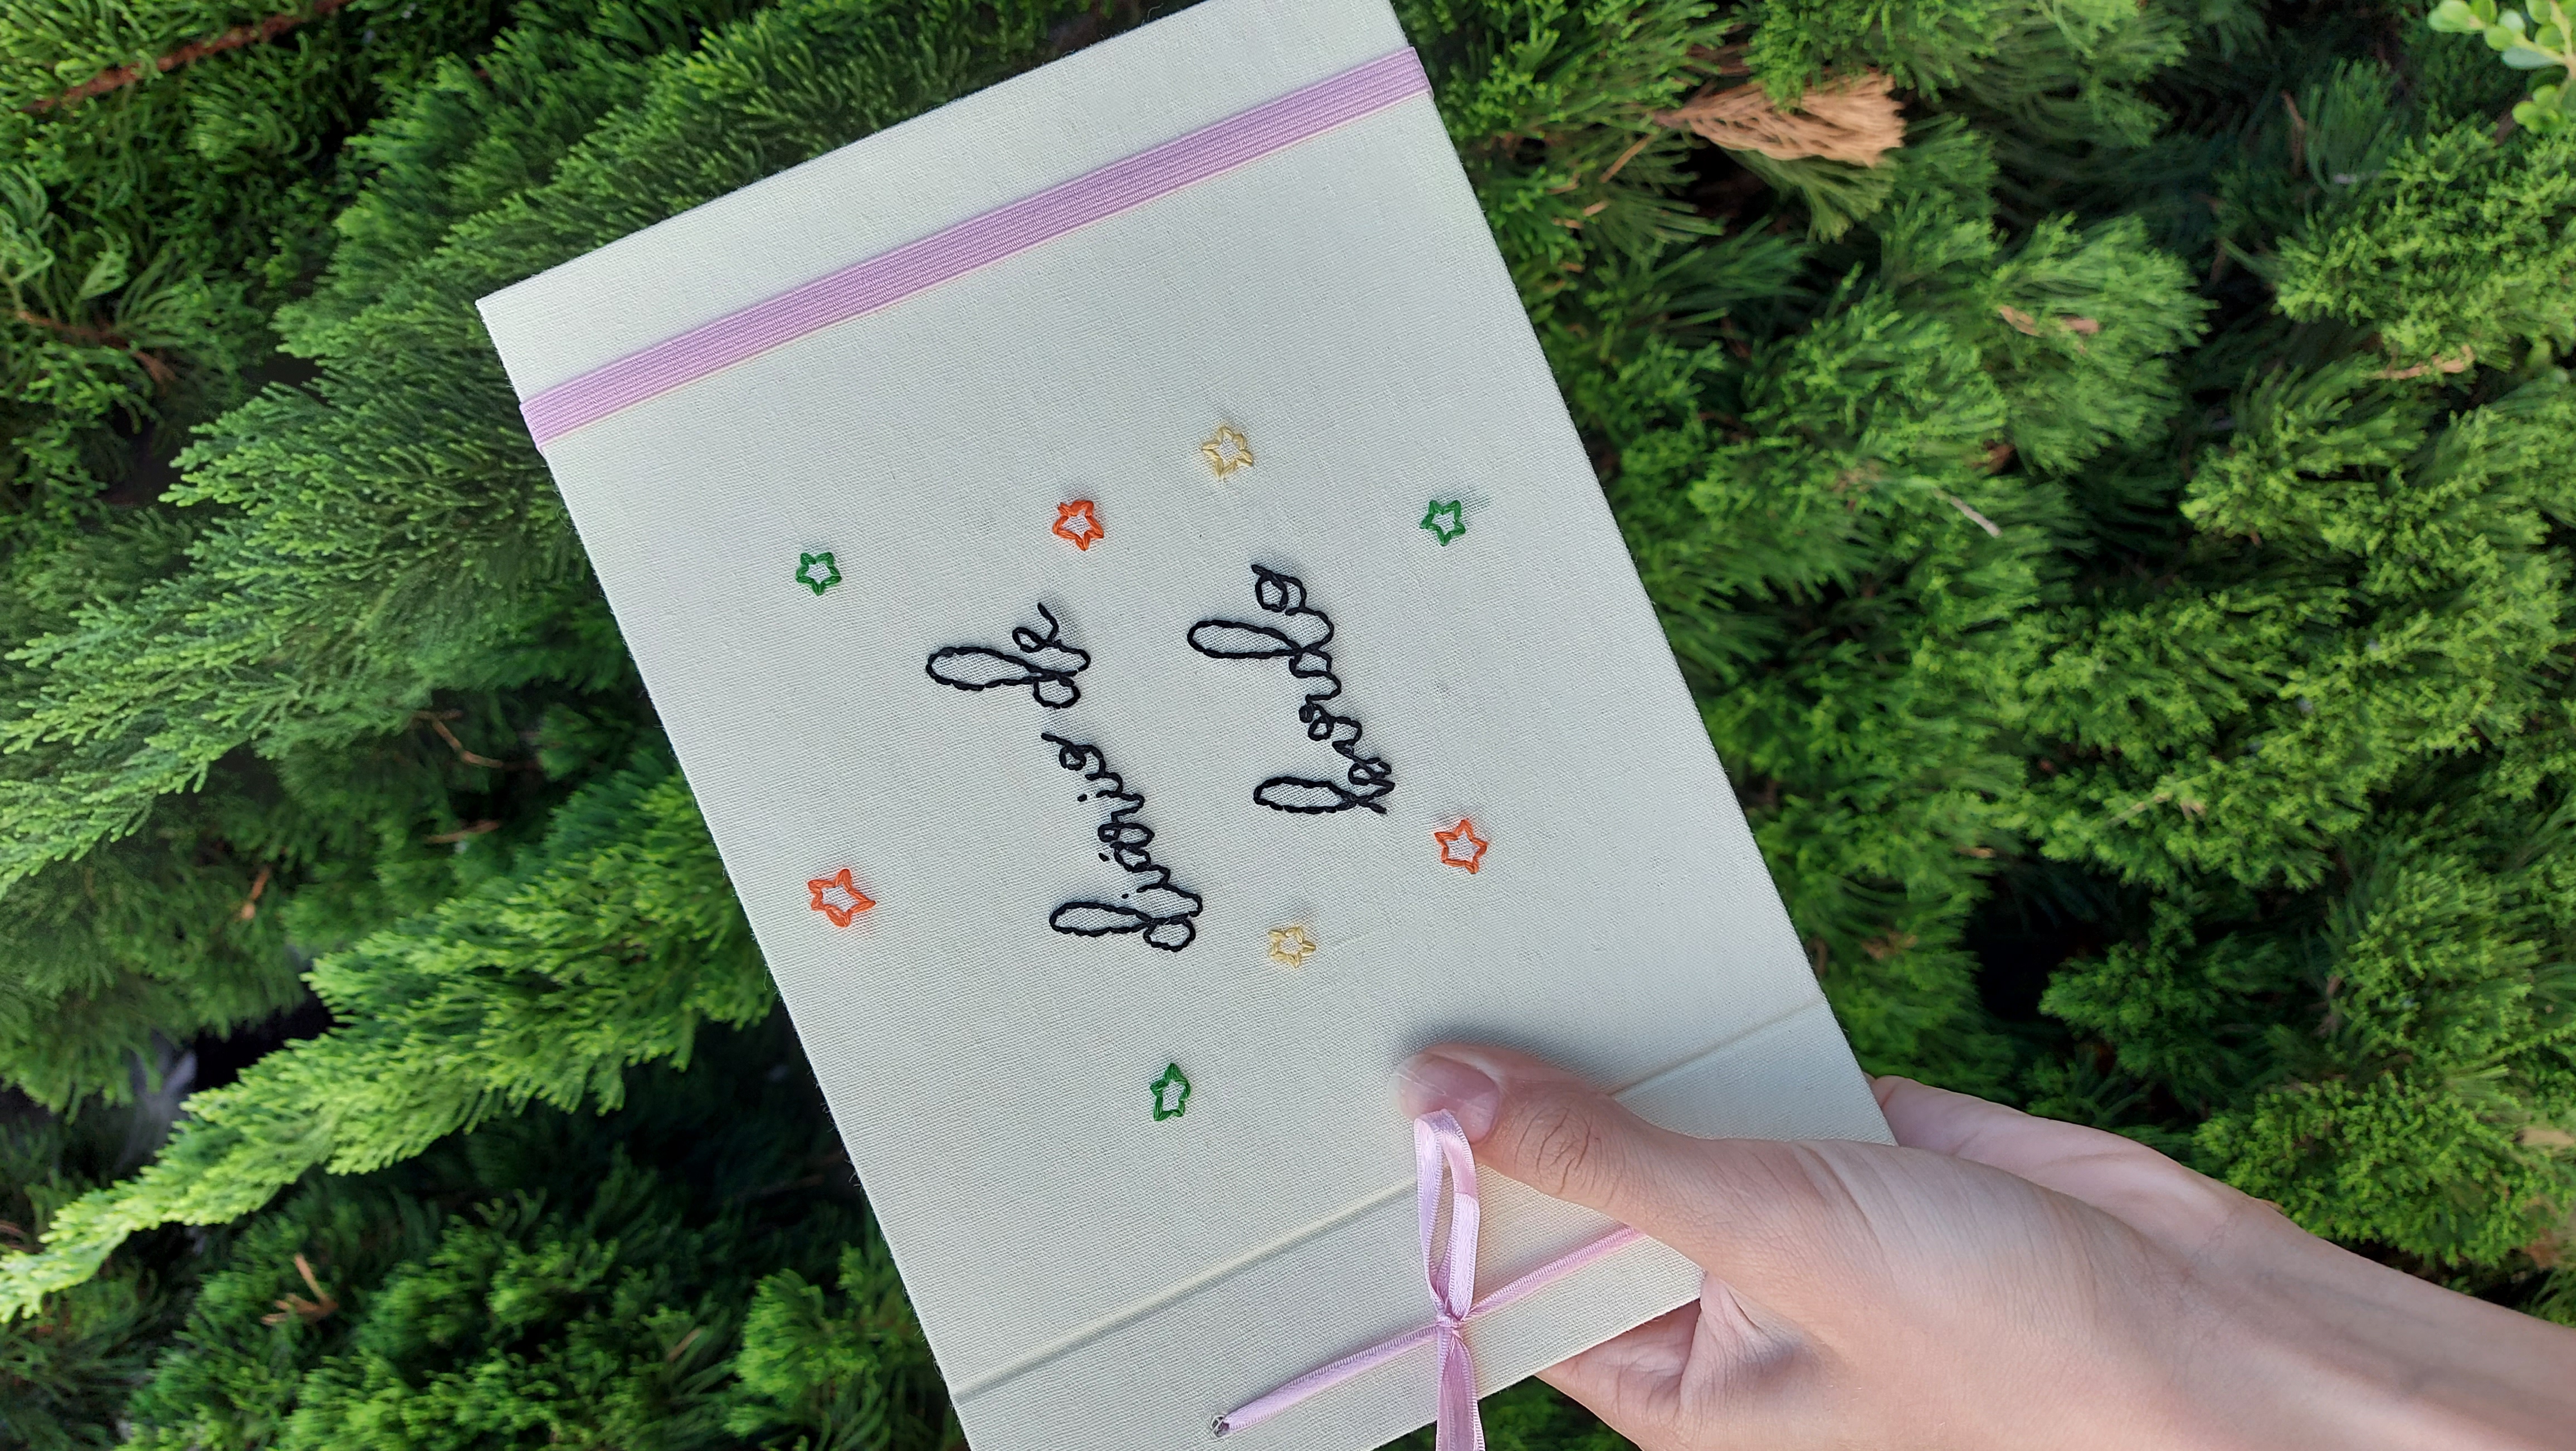 diário de
bordo